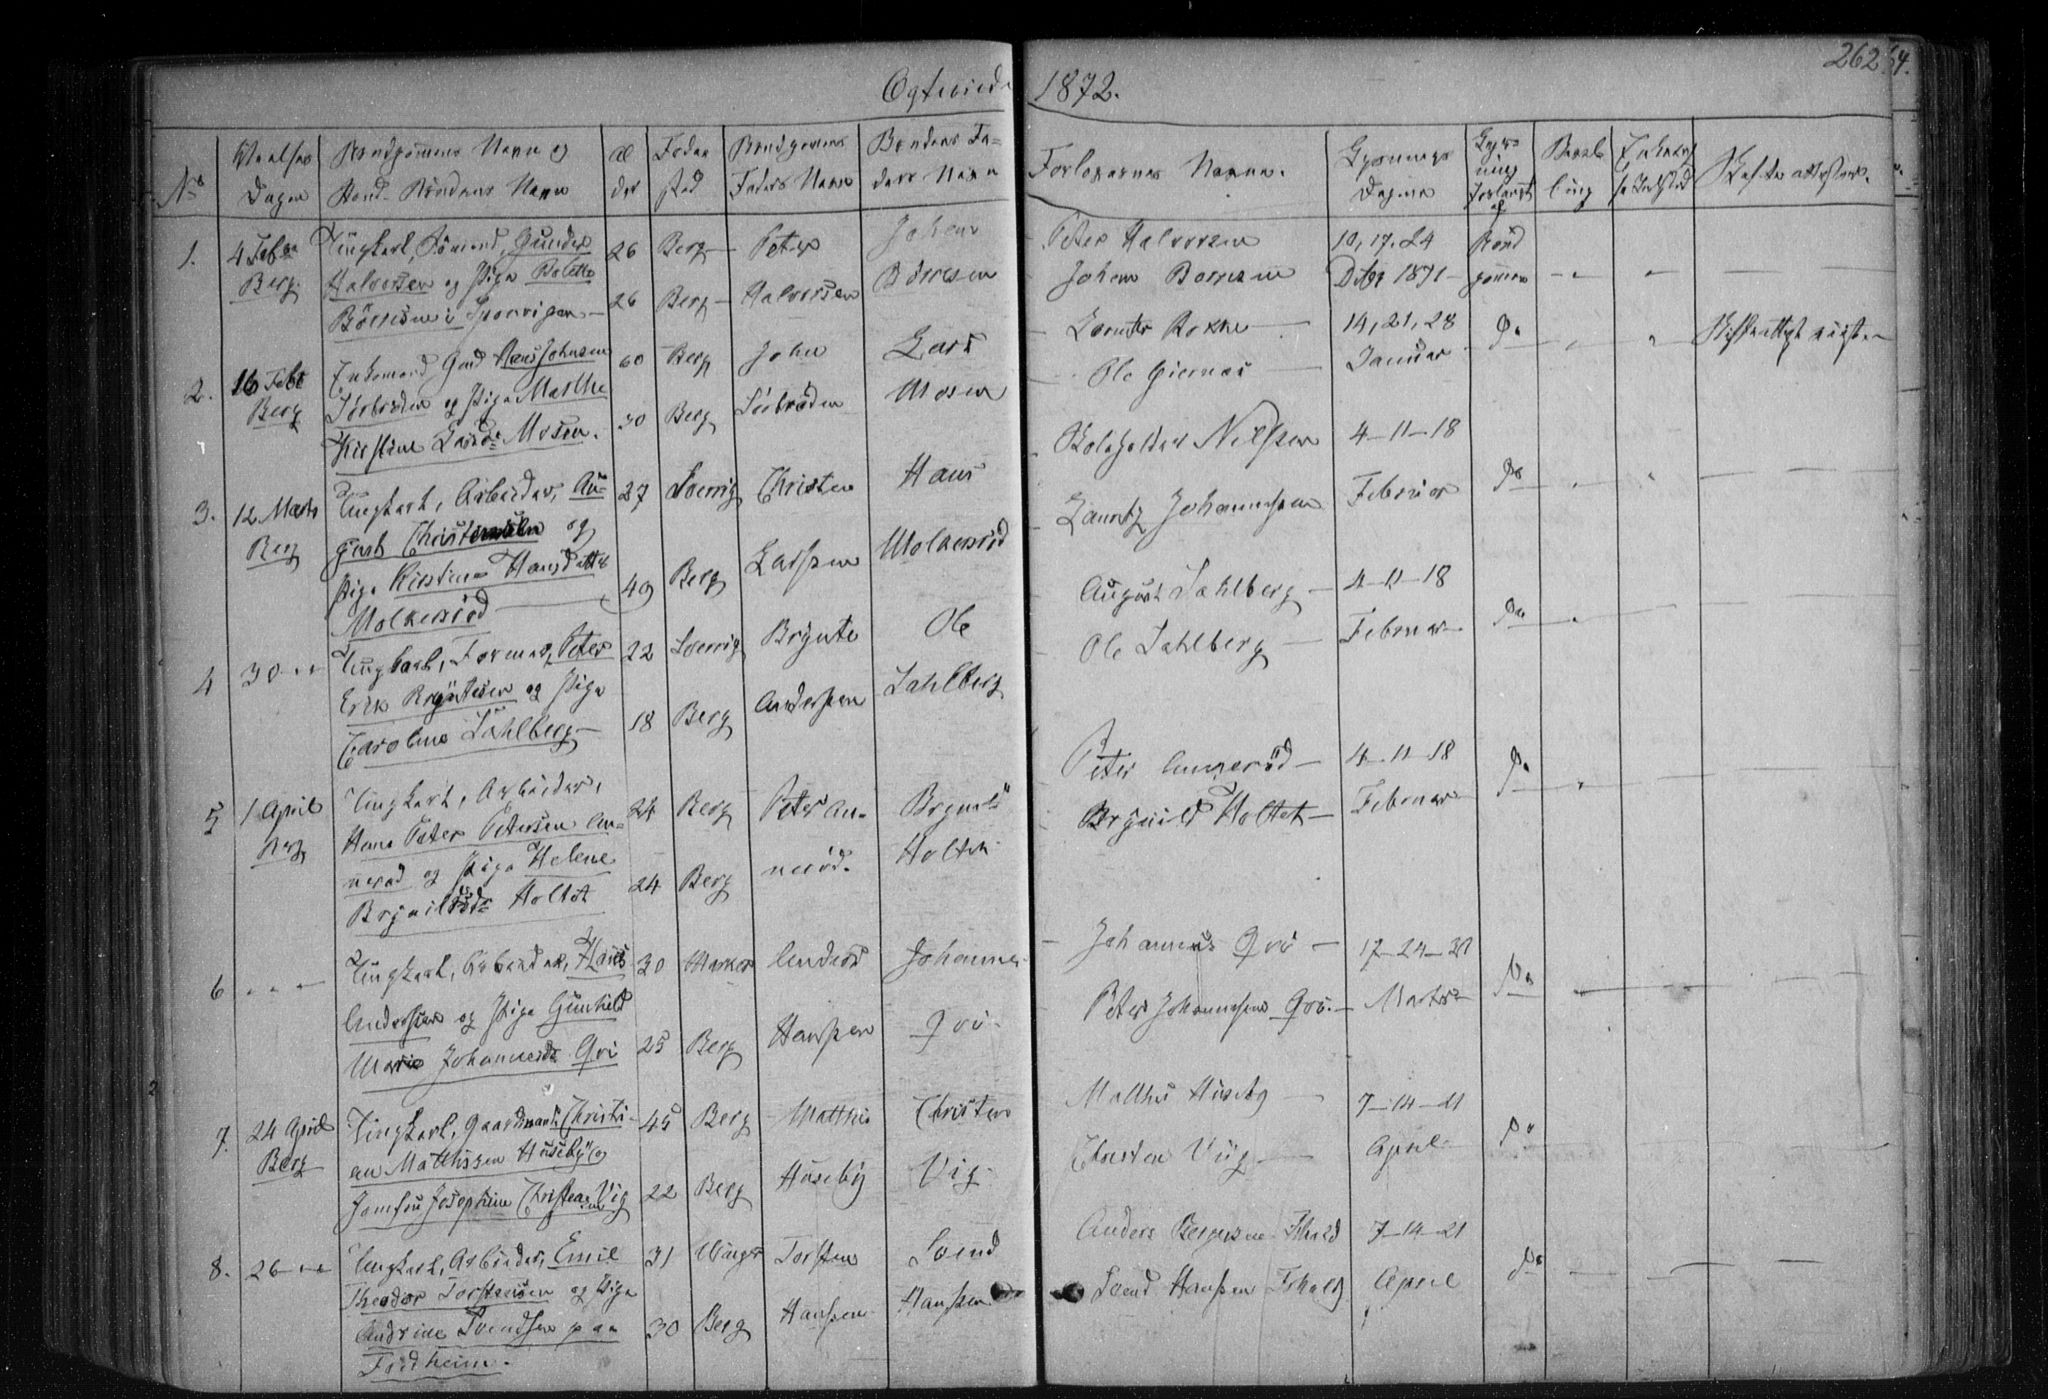 Ogteviede 1872.
262
No
Vielses Dagen
Brudgommens Navn og
Hand- Brudens Navn
Al der
Føde stad
Brudgomens Faders Navn
Brudens Faders Navn
Forlovernes Navne.
Lysnings Dagene
1.
4 Febr
Berg.
Ungkarl, Sömand, Gunder
Halvorsen og Pige Bolette
Börresen i Sponvigen
26 Berg
26 Berg
Peter
Halvorsen
Johan
Börresen
Peter Halvorsen
Johan Borresen
10, 17. 24
Dcbr 1871
Brud
gommen
2.
16 Febr
Berg
Enkemand Gmd Hans Johnsen
Sörbröden og Pige Marthe
Kirstine Larsdr Mosen.
60 Berg
30 Berg
John
Sörbröden
Lars
Mosen
Ole Giernæs
14, 21, 28
Januar
Do
3.
12 Marts
Berg
Ungkarl, Arbeider, Au-
gust Christensen og
Pige Kirstine Hansdatter
Molkersröd
27 Sverrig
49 Berg
Christen
Larssen
Hans
Molkersröd
Nilssen
Lauritz Johannessen
4-11-18
Februar
Do
4
30
Ungkarl, Former, Peter
Erik Bryntesen og Pige
Caroline Sahlberg
22 Sverrig
18 Berg
Brynte
Anderssen
Ole
Sahlberg
August Sahlberg
Ole Sahlberg
4-11-18
Februar
Do
5
1 April
Berg
Ungkarl, Arbeider,
Hans Peter Petersen An-
neröd og Pige Helene
Brynildsdr Holtet
24 Berg
24 Berg
Peter An-
neröd.
Brynild
Holtet
Peter Anneröd
Brynild Holtet
4-11-18
Februar
Do
6
Ungkarl, Arbeider, Hans
Anderssen og Pige Gunhild
Marie Johannesdr Qvi
30 Marker
25 Berg
Anders
Hanssen
Johannes
Qvi
Johannes Qvi
Peter Johannessen Qvi.
17-24-31
Marts
Do
7.
24 April
Berg
Ungkarl, Gaardmand Christi-
an Matthissen Huseby og
Jomfru Josephine Christensen Vig
45 Berg
22 Berg
Matthis
Huseby
Christen
Vig
Matthis Huseby
Christen Vig
7-14-21
April
Do
8.
26
Ungkarl, Arbeider, Emil
Theodor Torstensen og Pige
Andrine Svendsen paa
Fredheim.
31 Vinger
30 Berg
Torsten
Hanssen
Svend
Hanssen
Anders Bergersen
Svend Hanssen
7-14-21
April
Do